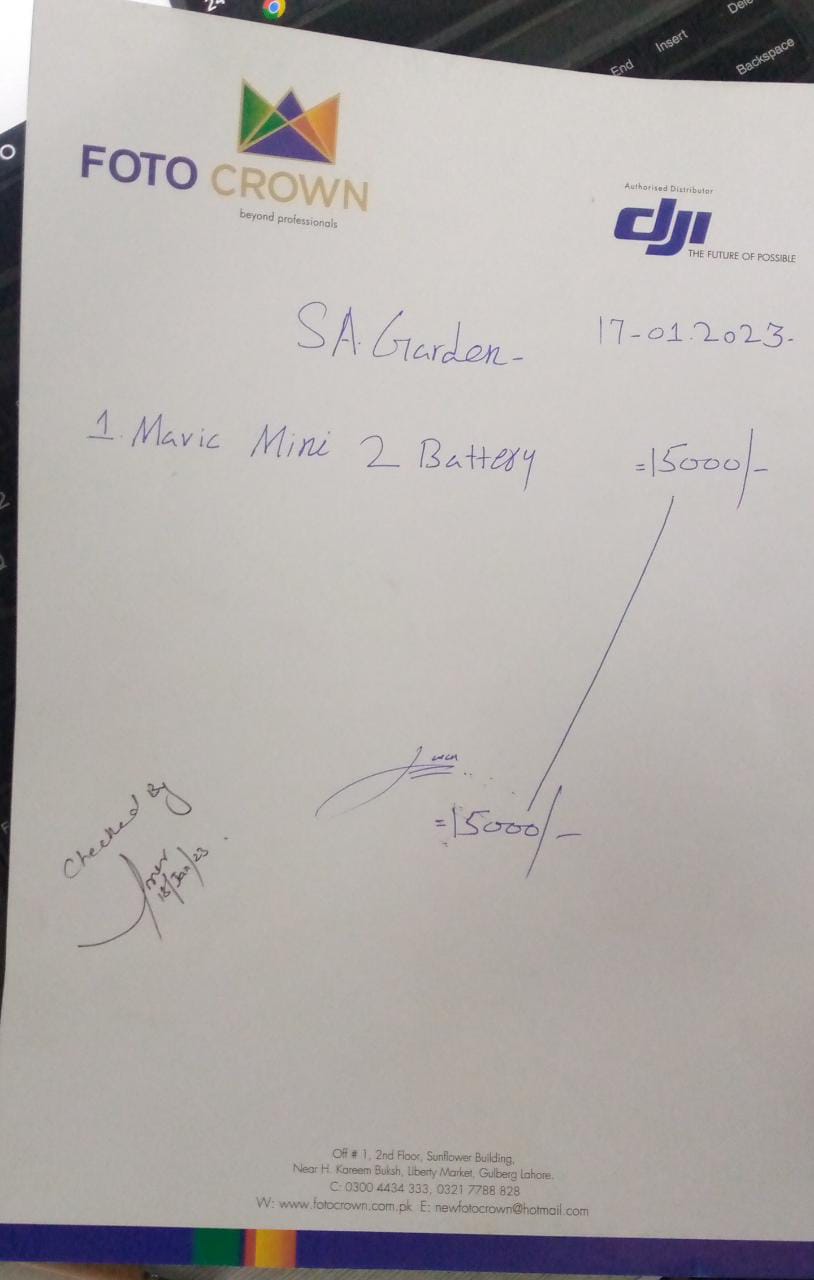 End Insert
Backspace
FOTO CROWN
beyond professionals
Authorised Distributor
dji
THE FUTURE OF POSSIBLE
SA. Garden-
17-01.2023-
1. Mavic Mini 2 Battery =15000/-
=15000/-
Checked By
18/Jan/23
Off # 1, 2nd Floor, Sunflower Building,
Near H. Kareem Buksh, Liberty Market, Gulberg Lahore.
C: 0300 4434 333, 0321 7788 828
W: www.fotocrown.com.pk E: newfotocrown@hotmail.com